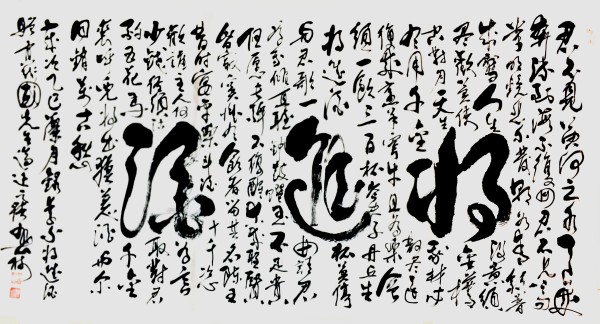 將進酒
君不見黃河之水天上來
奔流到海不復回君不見高
堂明鏡悲白髮朝如青絲暮
成雪人生得意須
盡歡莫使金樽
空對月天生我材必
有用千金散盡還
復來烹羊宰牛且為樂會
須一飲三百杯岑夫子丹丘生
將進酒杯莫停
與君歌一曲請君
為我傾耳聽鐘鼓饌玉不足貴
但願長醉不復醒古來聖賢
皆寂寞惟有飲者留其名陳王
昔時宴平樂斗酒十千恣
歡謔主人何為言
少錢徑須沽取對君
酌五花馬千金
裘呼兒將出換美酒與爾
同銷萬古愁
歲次乙巳月錄李白將進酒